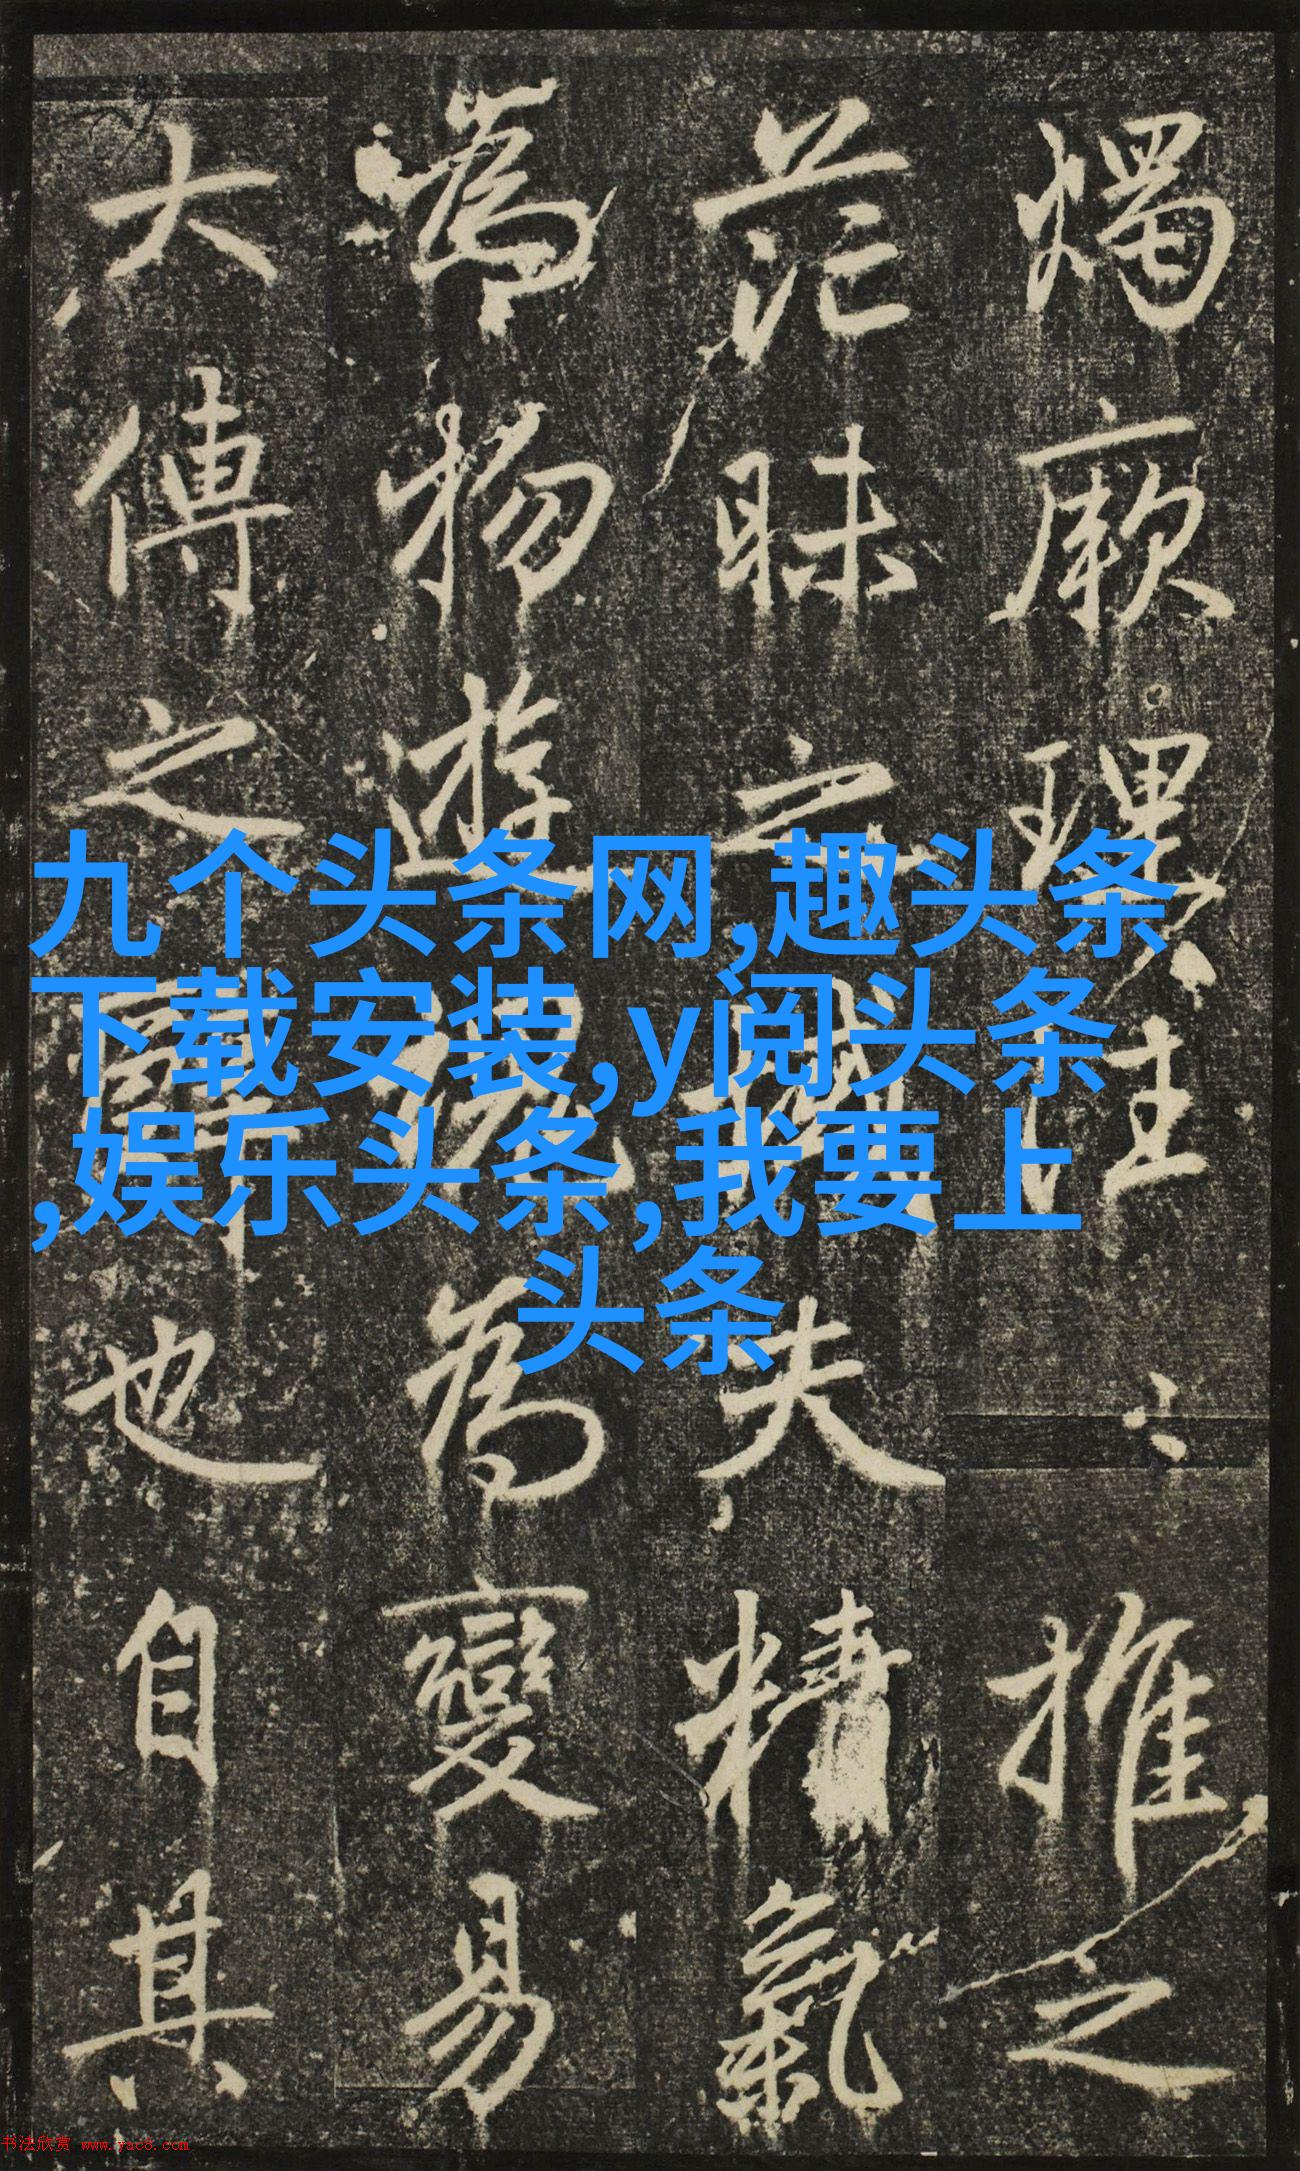 燭厥理推之
茫昧之夫精氣
為物遊魂為變易
大傳之辭也自其
九个头条网,趣头条
下载安装,y阅头条
,娱乐头条,我要上
头条
书法欣赏 www.yac8.com